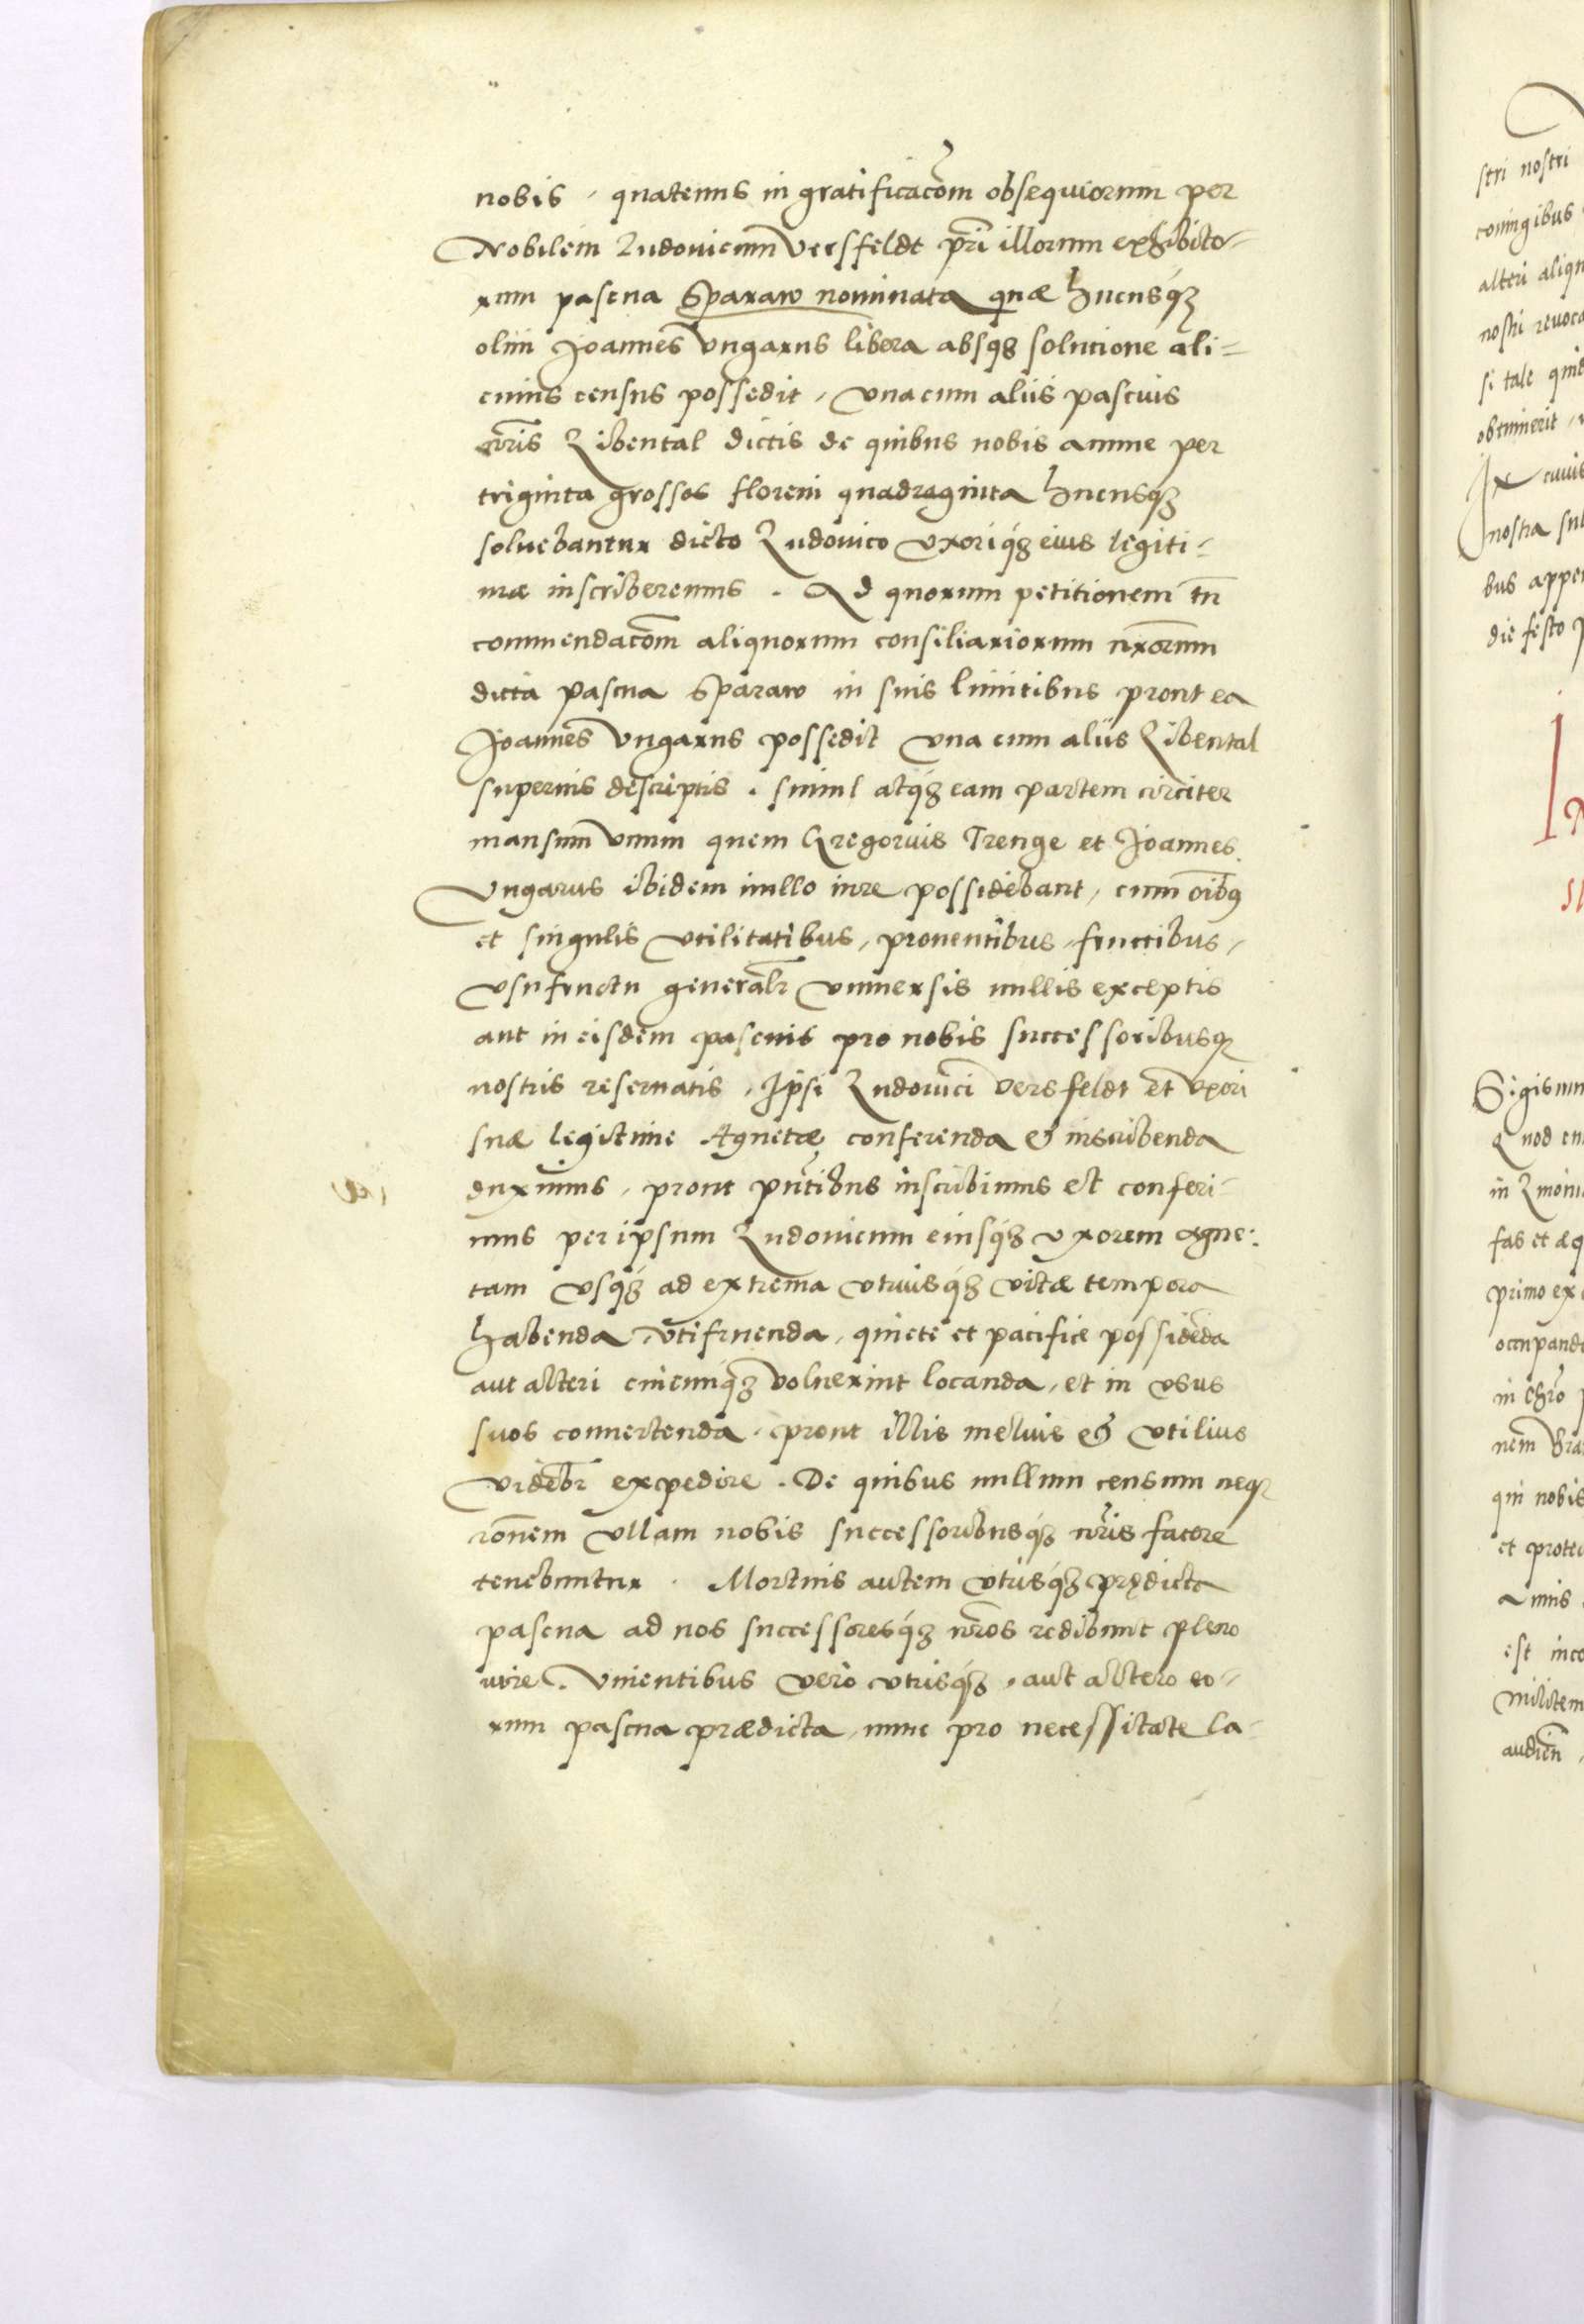 nobis, quatenus in gratificacõm obsequiorum per
Nobilem Ludovicum Versfeldt pñ illorum exhibito-
rum pascua Sparaw nominata quæ hucusq;
olim Joannes Vngarus libera absq; solutione ali=
cuius census possedit, vna cum aliis pascuis
Zibental dictis de quibus nobis annue per
triginta grossos floreni quadraginta hucusq;
soluebantur dicto Ludovico vxoriq; eius legiti-
mæ inscriberemus. Ad quorum petitionem tñ
commendacõm aliquorum consiliariorum nrõrum
dicta pascua Sparaw in suis limitibus prout ea
Joannes Vngarus possedit vna cum aliis Zibental
superius descriptis. simul atq; eam partem circiter
mansum vnum quem Gregorius Trenge et Joannes
Vngarus ibidem nullo iure possidebant, cum oĩbus
et singulis vtilitatibus, prouentibus, fructibus,
vsufructu generalr vniuersis nullis exceptis
aut in eisdem pascuis pro nobis successoribusq;
nostris reseruatis, Ipsi Ludouici Versfeldt et vxori
suæ legictime Agnetæ conferenda & inscribenda
duximus, prout pñtibus inscribimus et conferi-
mus per ipsum Ludouicum eiusq; vxorem Agne:
tam vsq; ad extrema vtriusq; vitæ tempora
habenda, vtifruenda, quiete et pacifice possidẽda
aut alteri cuicunq; voluerint locanda, et in vsus
suos conuertenda, prout illis melius & vtilius
videbr expedire. De quibus nullum censum neq;
rõnem vllam nobis successoribusq; nr̃is facere
tenebuntur. Mortuis autem vtrisq; prędicta
pascua ad nos successoresq; nr̃os redibunt pleno
iure. Viuentibus vero vtrisq;, aut altero eo-
rum pascua prædicta, nunc pro necessitate la-
stri nostri
coniugibus
nostri reuoca
si tale
obtinuerit
nostra
bus
die festo
Sigismun
Quod
in
fas et
primo ex
occupand
in chr̃o
nem
qui nobis
et protec
est
militem